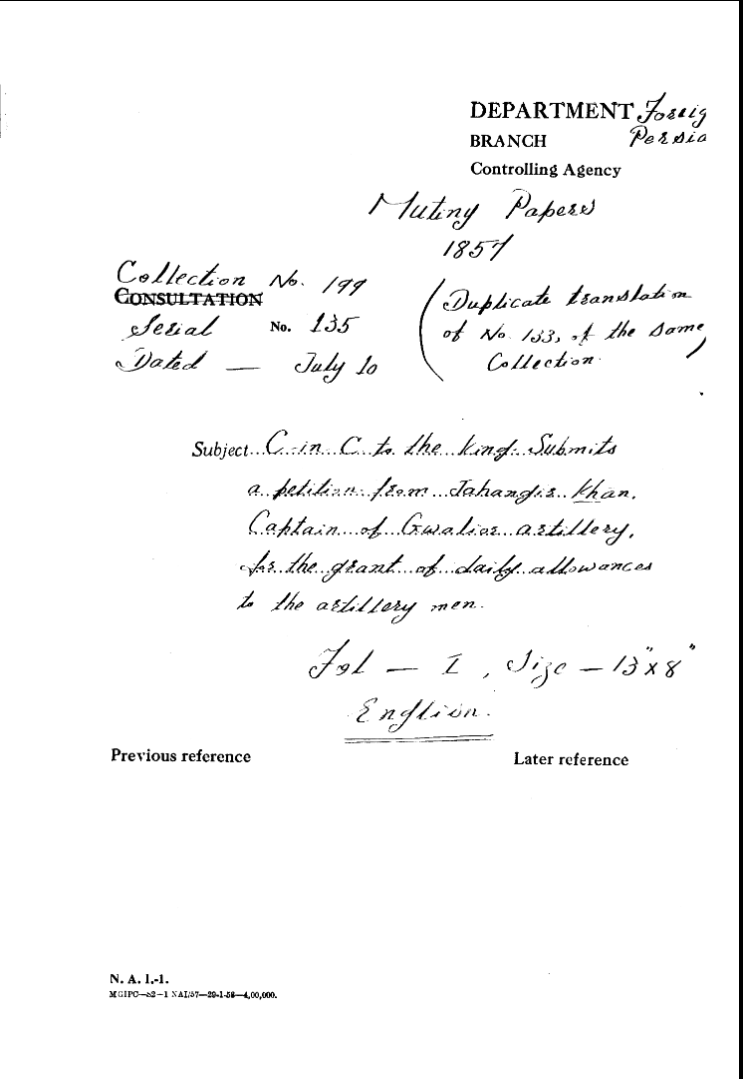 DEPARTMENT Foreig
BRANCH Persia
Controlling Agency
Mutiny Papers
1857
Collection No. 199
CONSULTATION
Serial No. 135
Dated — July 10
(Duplicate translation
of No. 133, of the same
Collection.)
Subject...C-in-C to the king: Submits
a petition from Jahangir Khan,
Captain of Gwalior artillery,
for the grant of daily allowances
to the artillery men.
Fol — I, Size — 13" x 8"
English.
Previous reference
Later reference
N. A. I.-1.
MGIPC—S2—1 NAI/57—29-1-58—4,00,000.